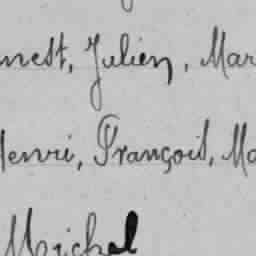 nest, Julien, Mar
Henri, François, Ma
Michel